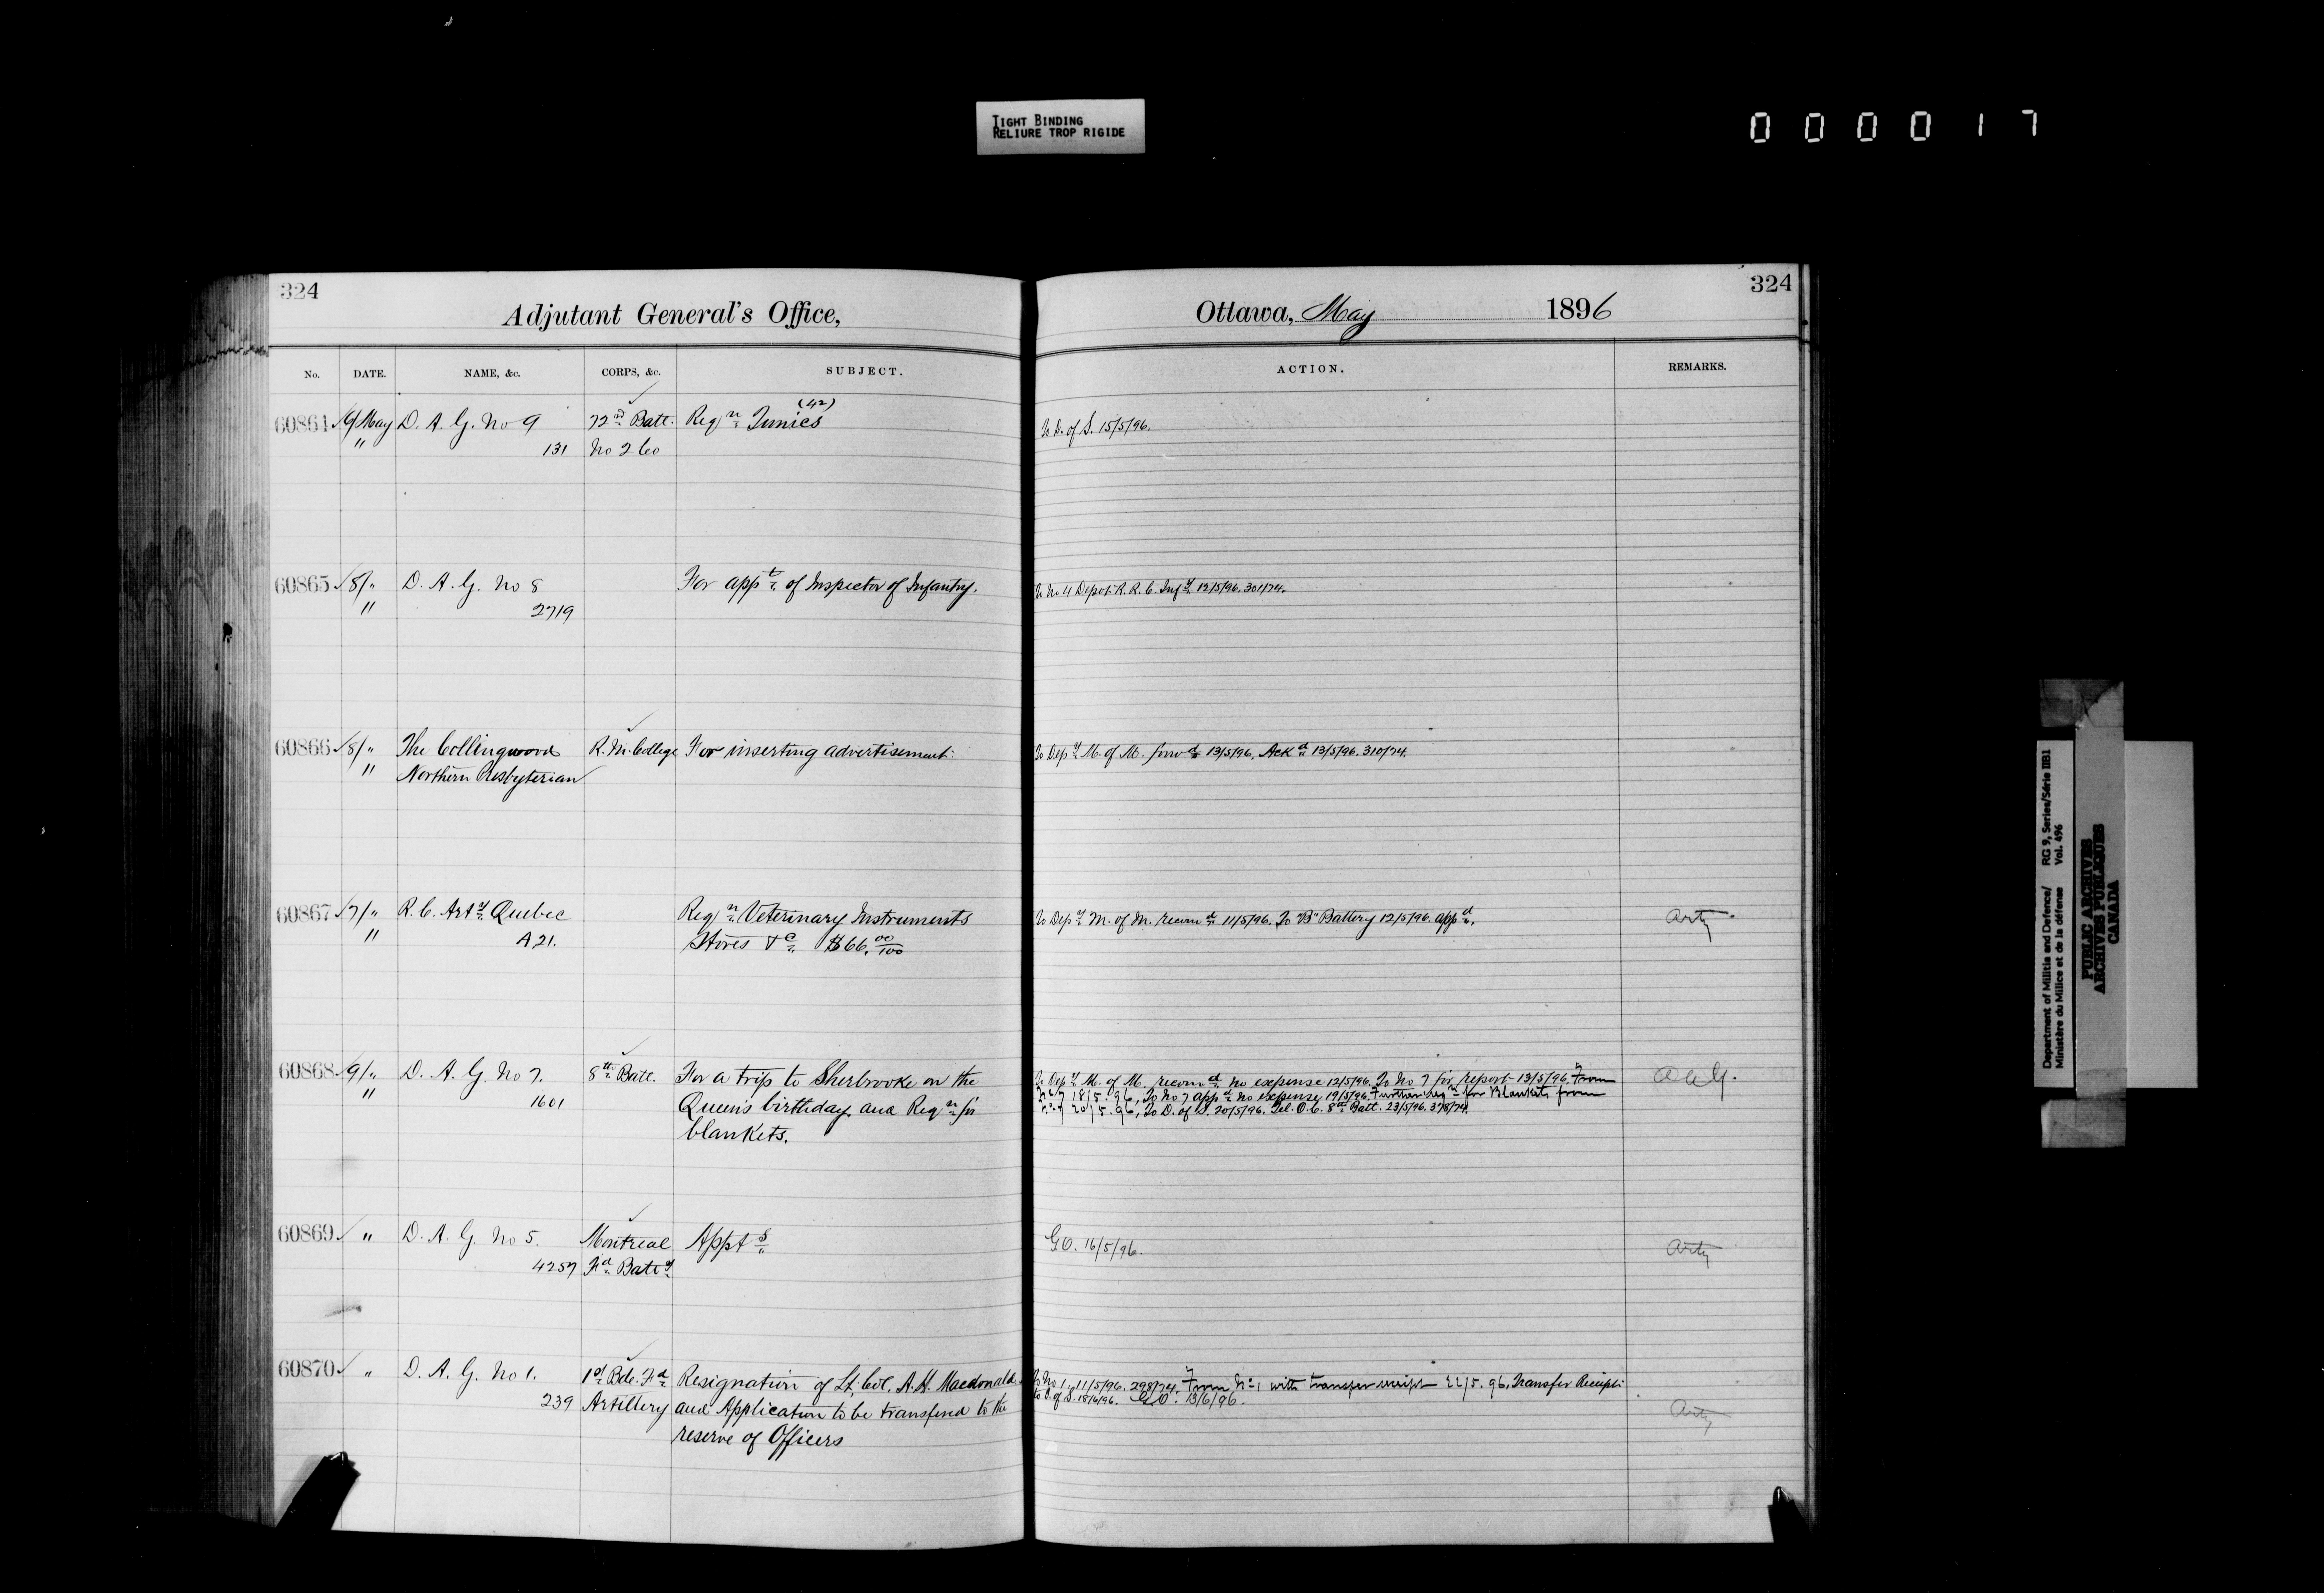 TIGHT BINDING
RELIURE TROP RIGIDE
0 0 0 0 1 7
324
Adjutant General's Office,
No. DATE. NAME, &c. CORPS, &c. SUBJECT.
60864 9/May D. A. G. No 9 72nd Batt. Reqn Tunics (42)
" 131 No 2 Co
60865 8/" D. A. G. No 8 For appt of Inspector of Infantry.
" 2719
60866 8/" The Collingwood R. M. College For inserting advertisement
" Northern Presbyterian
60867 7/" R. C. Arty Quebec Reqn Veterinary Instruments
" A 21. Stores &c $66.00/100
60868 9/" D. A. G. No 7. 8th Batt. For a trip to Sherbrooke on the
" 1601 Queen's birthday and Reqn for
blankets.
60869 " D. A. G. No 5. Montreal Appts
4257 Fd Baty
60870 " D. A. G. No 1. 1st Bde. Fd Resignation of Lt. Col. A. H. Macdonald
239 Artillery and Application to be transfered to the
reserve of Officers
324
Ottawa, May 1896
ACTION. REMARKS.
To D. of S. 15/5/96.
To No 4 Depot R. R. C. Infy 12/5/96. 301/74.
To Depy M. of M. forwd 13/5/96. Ackd 13/5/96. 310/74.
To Depy M. of M. recomd 11/5/96. To "B" Battery 12/5/96. appd. Arty
To Depy M. of M. recomd no expense 12/5/96. To No 7 for report 13/5/96. From
No 7 18/5.96, To No 7 appd no expense 19/5/96. Further reqn for Blankets from
No 7 20/5.96, To D. of S. 20/5/96. Tel. O. C. 8th Batt. 23/5/96. 378/74.
G.O. 16/5/96. Arty
To No 1. 11/5/96. 298/74. From No 1 with transfer receipt 22/5.96, Transfer Receipt
to D. of S. 18/6/96. G.O. 13/6/96.
Arty
Department of Militia and Defence/ RG 9, Series/Série IIB1
Ministère du Milice et de la défense Vol. 496
PUBLIC ARCHIVES
ARCHIVES PUBLIQUES
CANADA